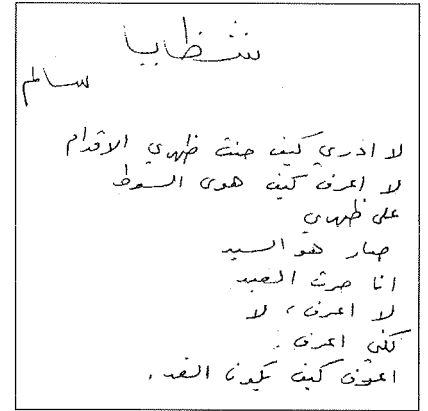 شظايا
سالم
لا ادري كيف حنت ظهري الاقدام
لا اعرف كيف هوى السوط
على ظهري
صار هو السيد
انا صرت العبد
لا اعرف، لا
لكني اعرف:
اعرف كيف يكون الغد.